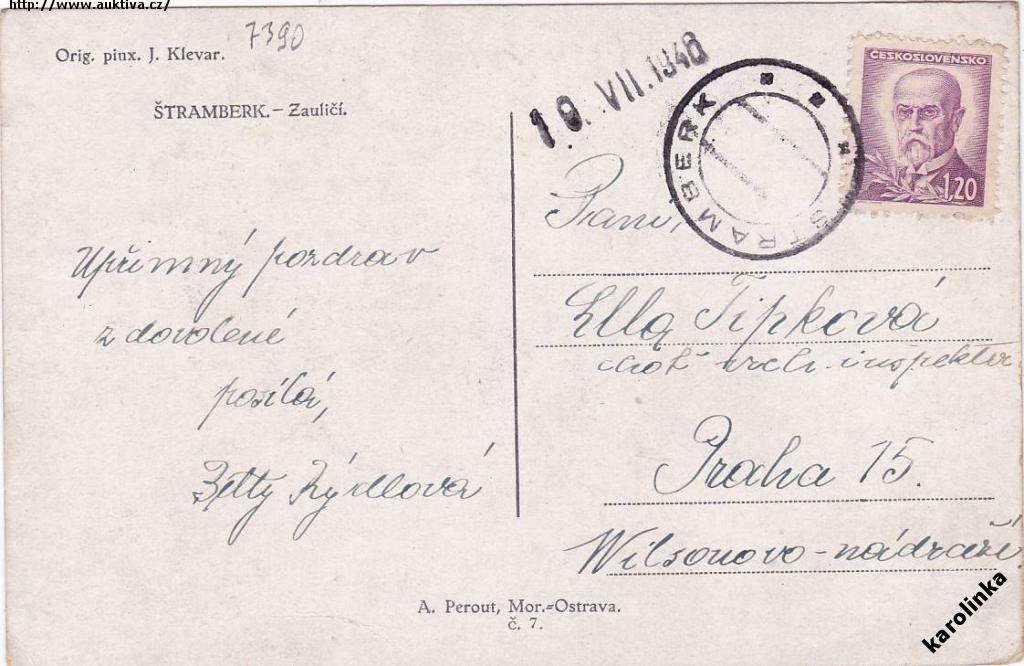 http://www.auktiva.cz/
7390
Orig. pinx. J. Klevar.
ŠTRAMBERK.- Zauličí.
Upřímný pozdrav
z dovolené
posílá,
Betty Rýdlová
10. VII. 1948
ŠTRAMBERK
ČESKOSLOVENSKO
1,20
Paní,
Ella Tipková
choť vrch. inspektor
Praha 15.
Wilsonovo-nádraží
A. Perout, Mor.-Ostrava.
č. 7.
karolinka